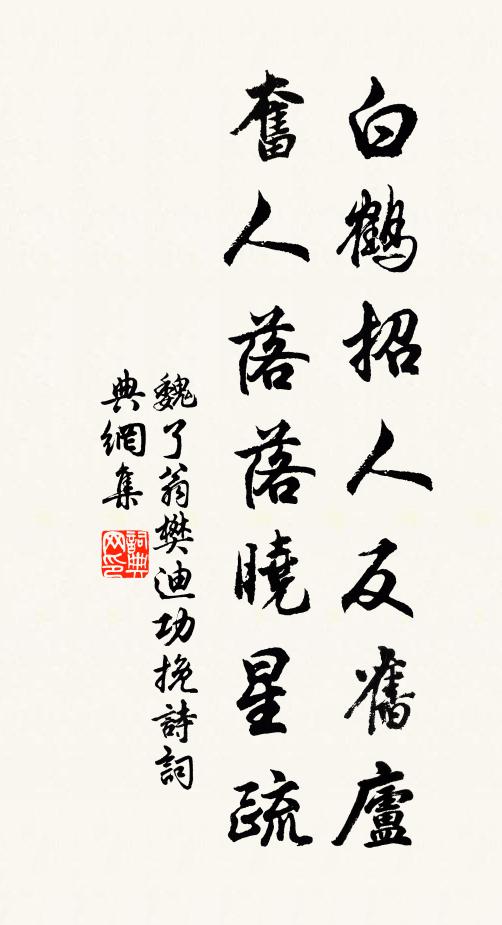 白鶴招人反舊廬
奮人落落曉星疏
魏了翁樊迪功挽詩詞
典網集
詞典
网印